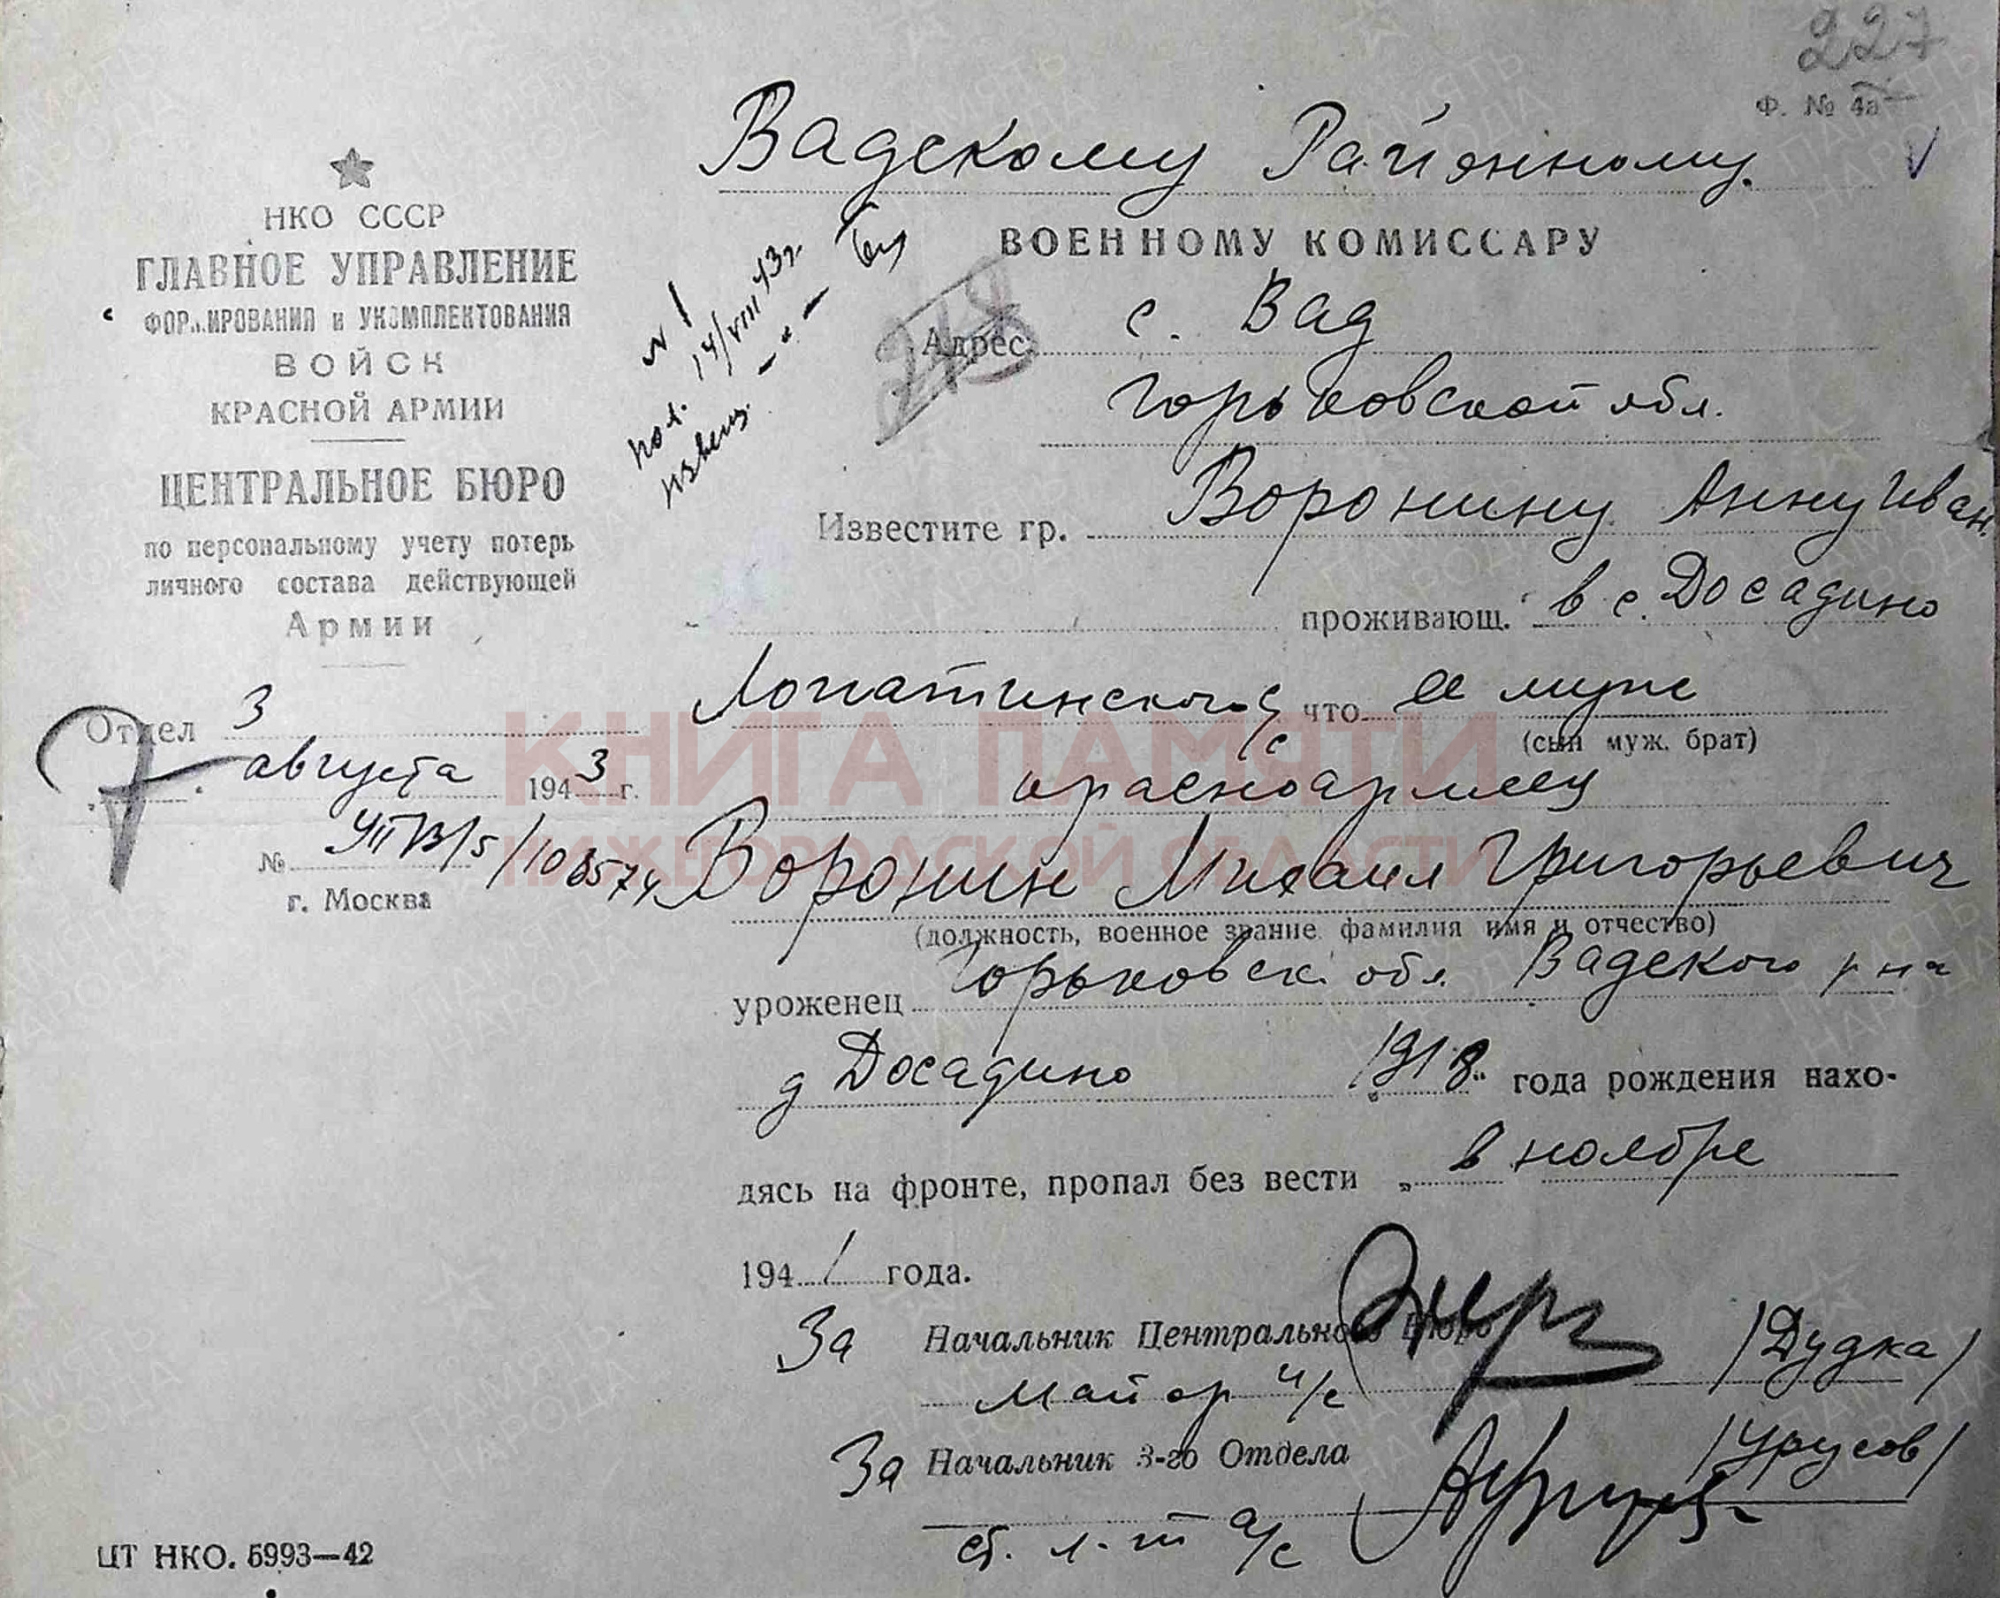 227
Ф. № 4а
Вадскому Районному
ВОЕННОМУ КОМИССАРУ
НКО СССР
ГЛАВНОЕ УПРАВЛЕНИЕ
ФОРМИРОВАНИЯ и УКОМПЛЕКТОВАНИЯ
ВОЙСК
КРАСНОЙ АРМИИ
ЦЕНТРАЛЬНОЕ БЮРО
по персональному учету потерь
личного состава действующей
Армии
Отдел 3
7 августа 1943 г.
№ УПВ/5/106574
г. Москва
№ 1
пол. 14/VIII 43 г.
извещ.
248
Адрес с. Вад
Горьковской обл.
Известите гр. Воронину Анну Иван.
проживающ. в с. Досадино
Лопатинского с/с что ее муж
(сын муж. брат)
красноармеец
Воронин Михаил Григорьевич
(должность, военное звание фамилия имя и отчество)
уроженец Горьковск. обл. Вадского р-на
д Досадино 1918 года рождения нахо-
дясь на фронте, пропал без вести „ в ноябре
1941 года.
За Начальник Центрального Бюро
майор и/с /Дудка/
За Начальник 3-го Отдела /Урусов/
ст. л-т а/с
ЦТ НКО. 5993—42
КНИГА ПАМЯТИ
НИЖЕГОРОДСКОЙ ОБЛАСТИ